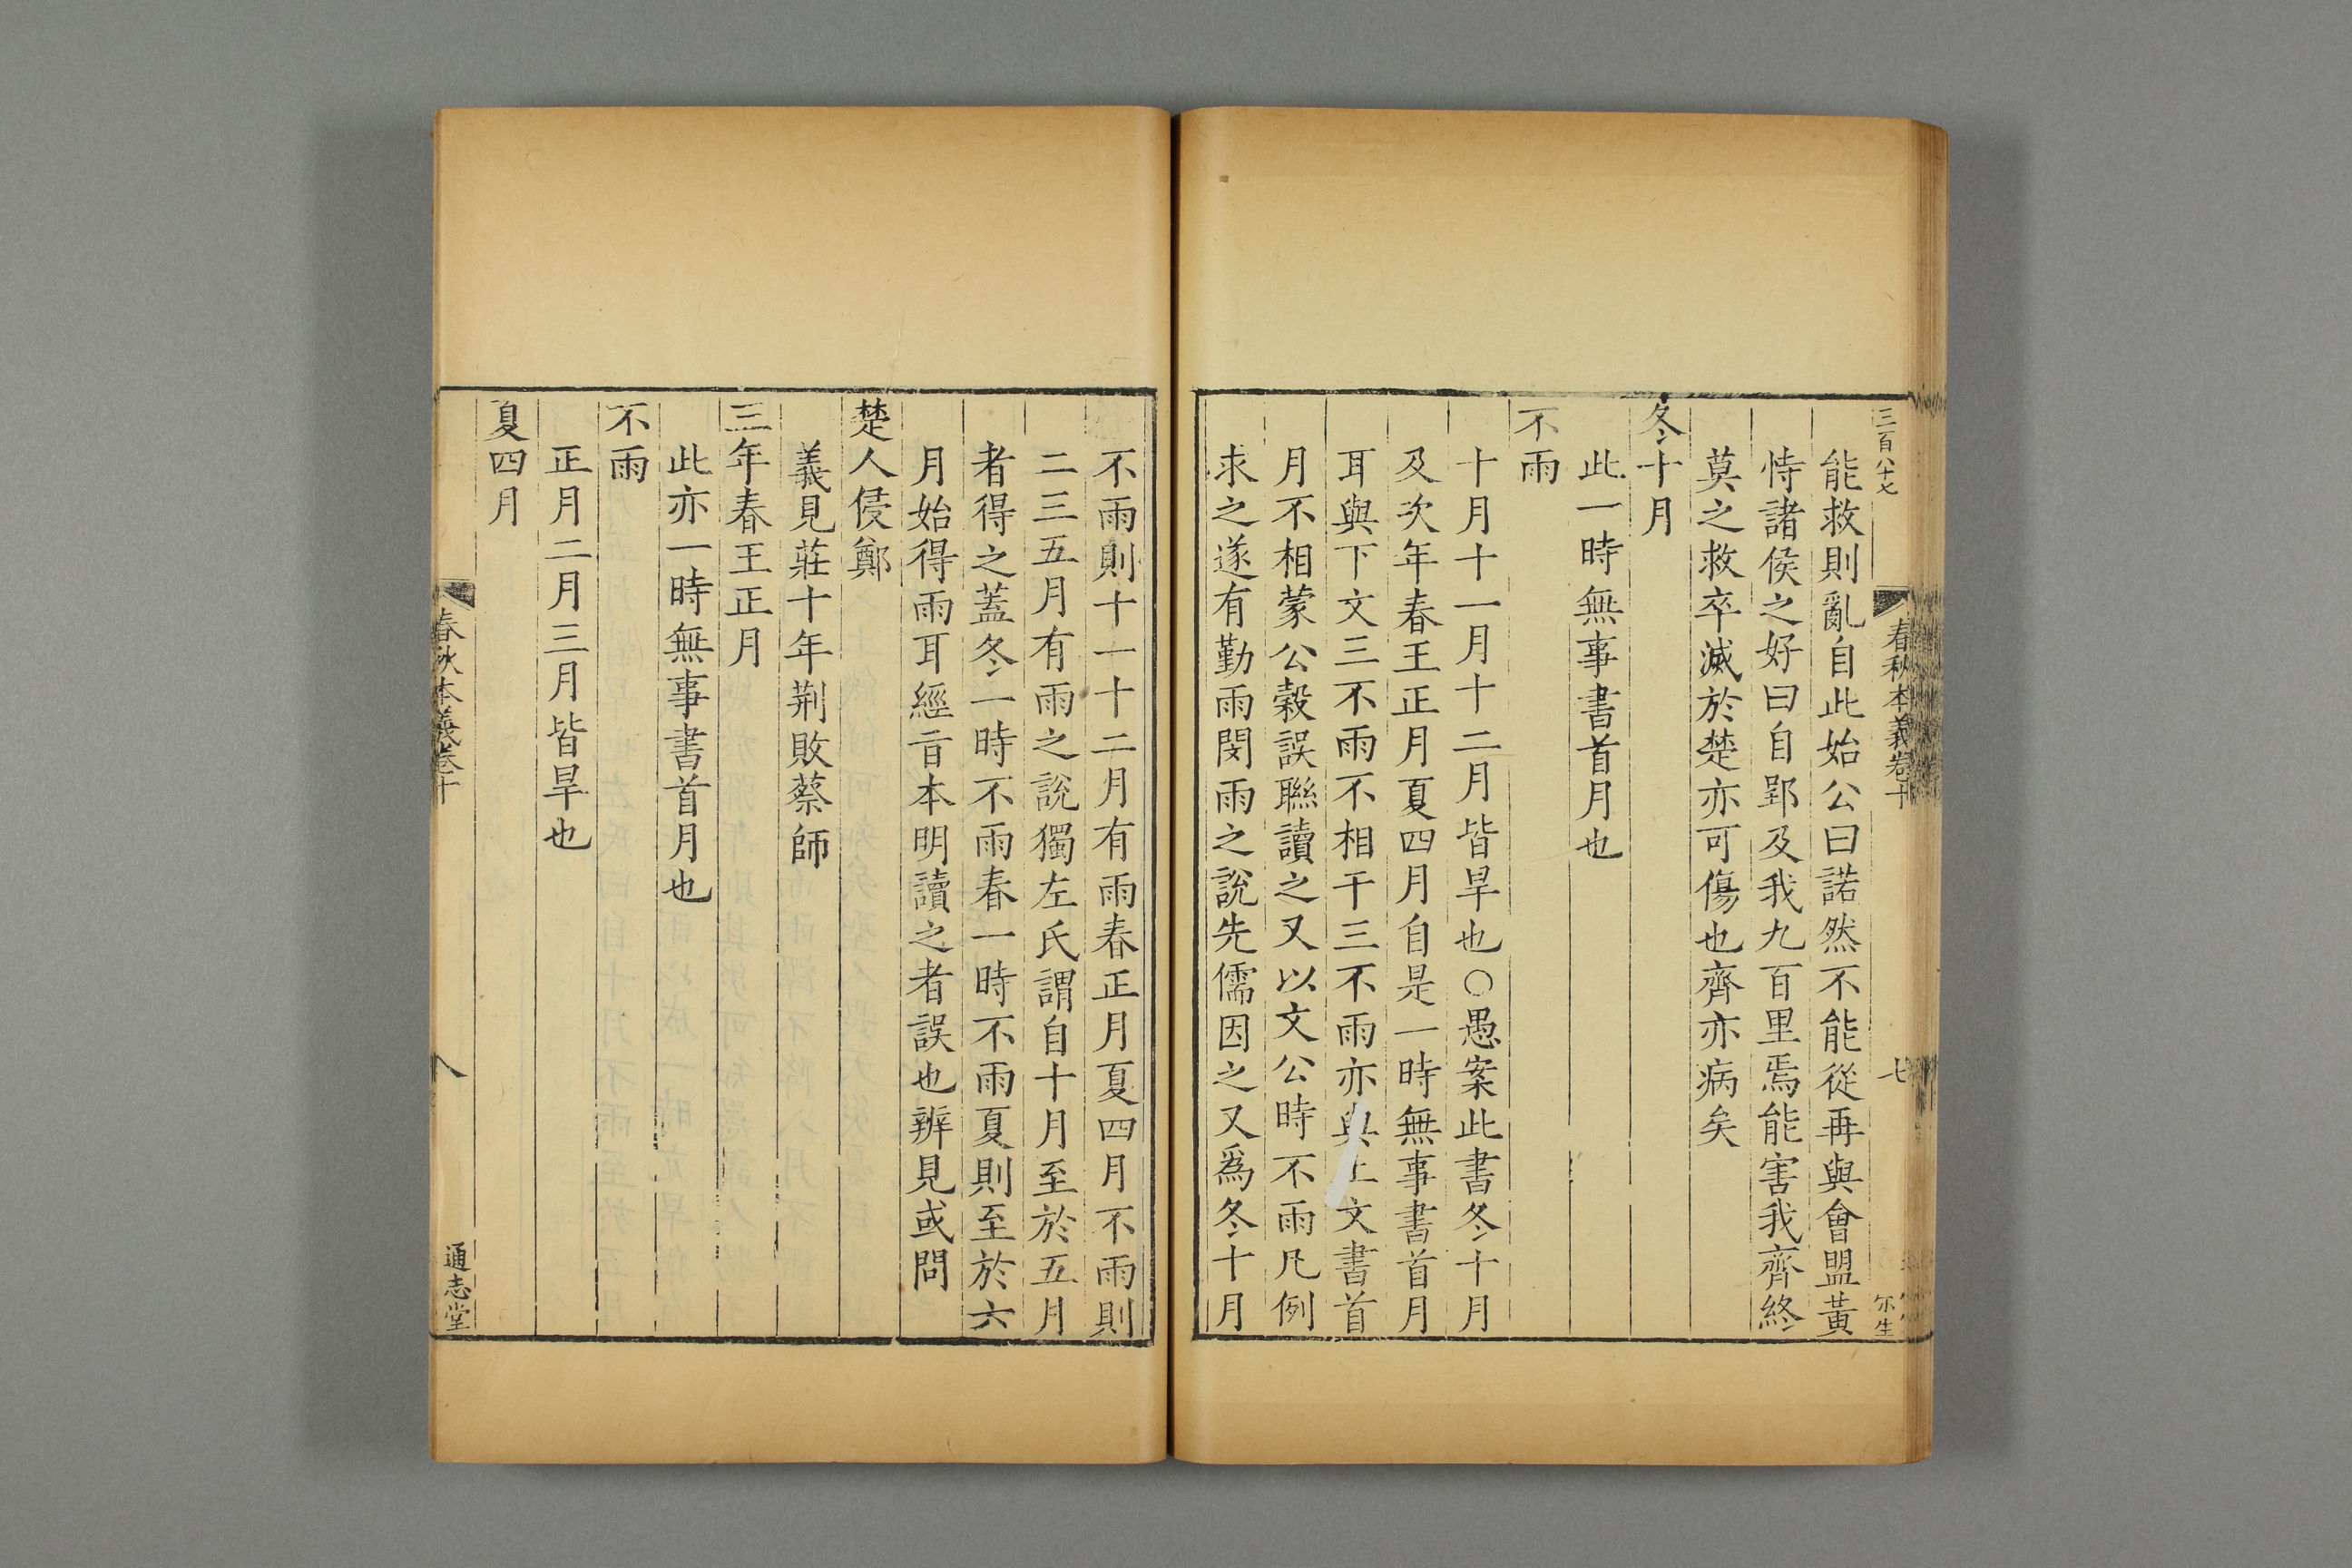 三百八十七
春秋本義卷十
七
能救則亂自此始公曰諾然不能從再與會盟黃
恃諸侯之好曰自郢及我九百里焉能害我齊終
莫之救卒滅於楚亦可傷也齊亦病矣
冬十月
此一時無事書首月也
不雨
十月十一月十二月皆旱也○愚案此書冬十月
及次年春王正月夏四月自是一時無事書首月
耳與下文三不雨不相干三不雨亦與上文書首
月不相蒙公穀誤聯讀之又以文公時不雨凡例
求之遂有勤雨閔雨之說先儒因之又爲冬十月
不雨則十一十二月有雨春正月夏四月不雨則
二三五月有雨之說獨左氏謂自十月至於五月
者得之蓋冬一時不雨春一時不雨夏則至於六
月始得雨耳經旨本明讀之者誤也辨見或問
楚人侵鄭
義見莊十年荆敗蔡師
三年春王正月
此亦一時無事書首月也
不雨
正月二月三月皆旱也
夏四月
春秋本義卷十
八
通志堂